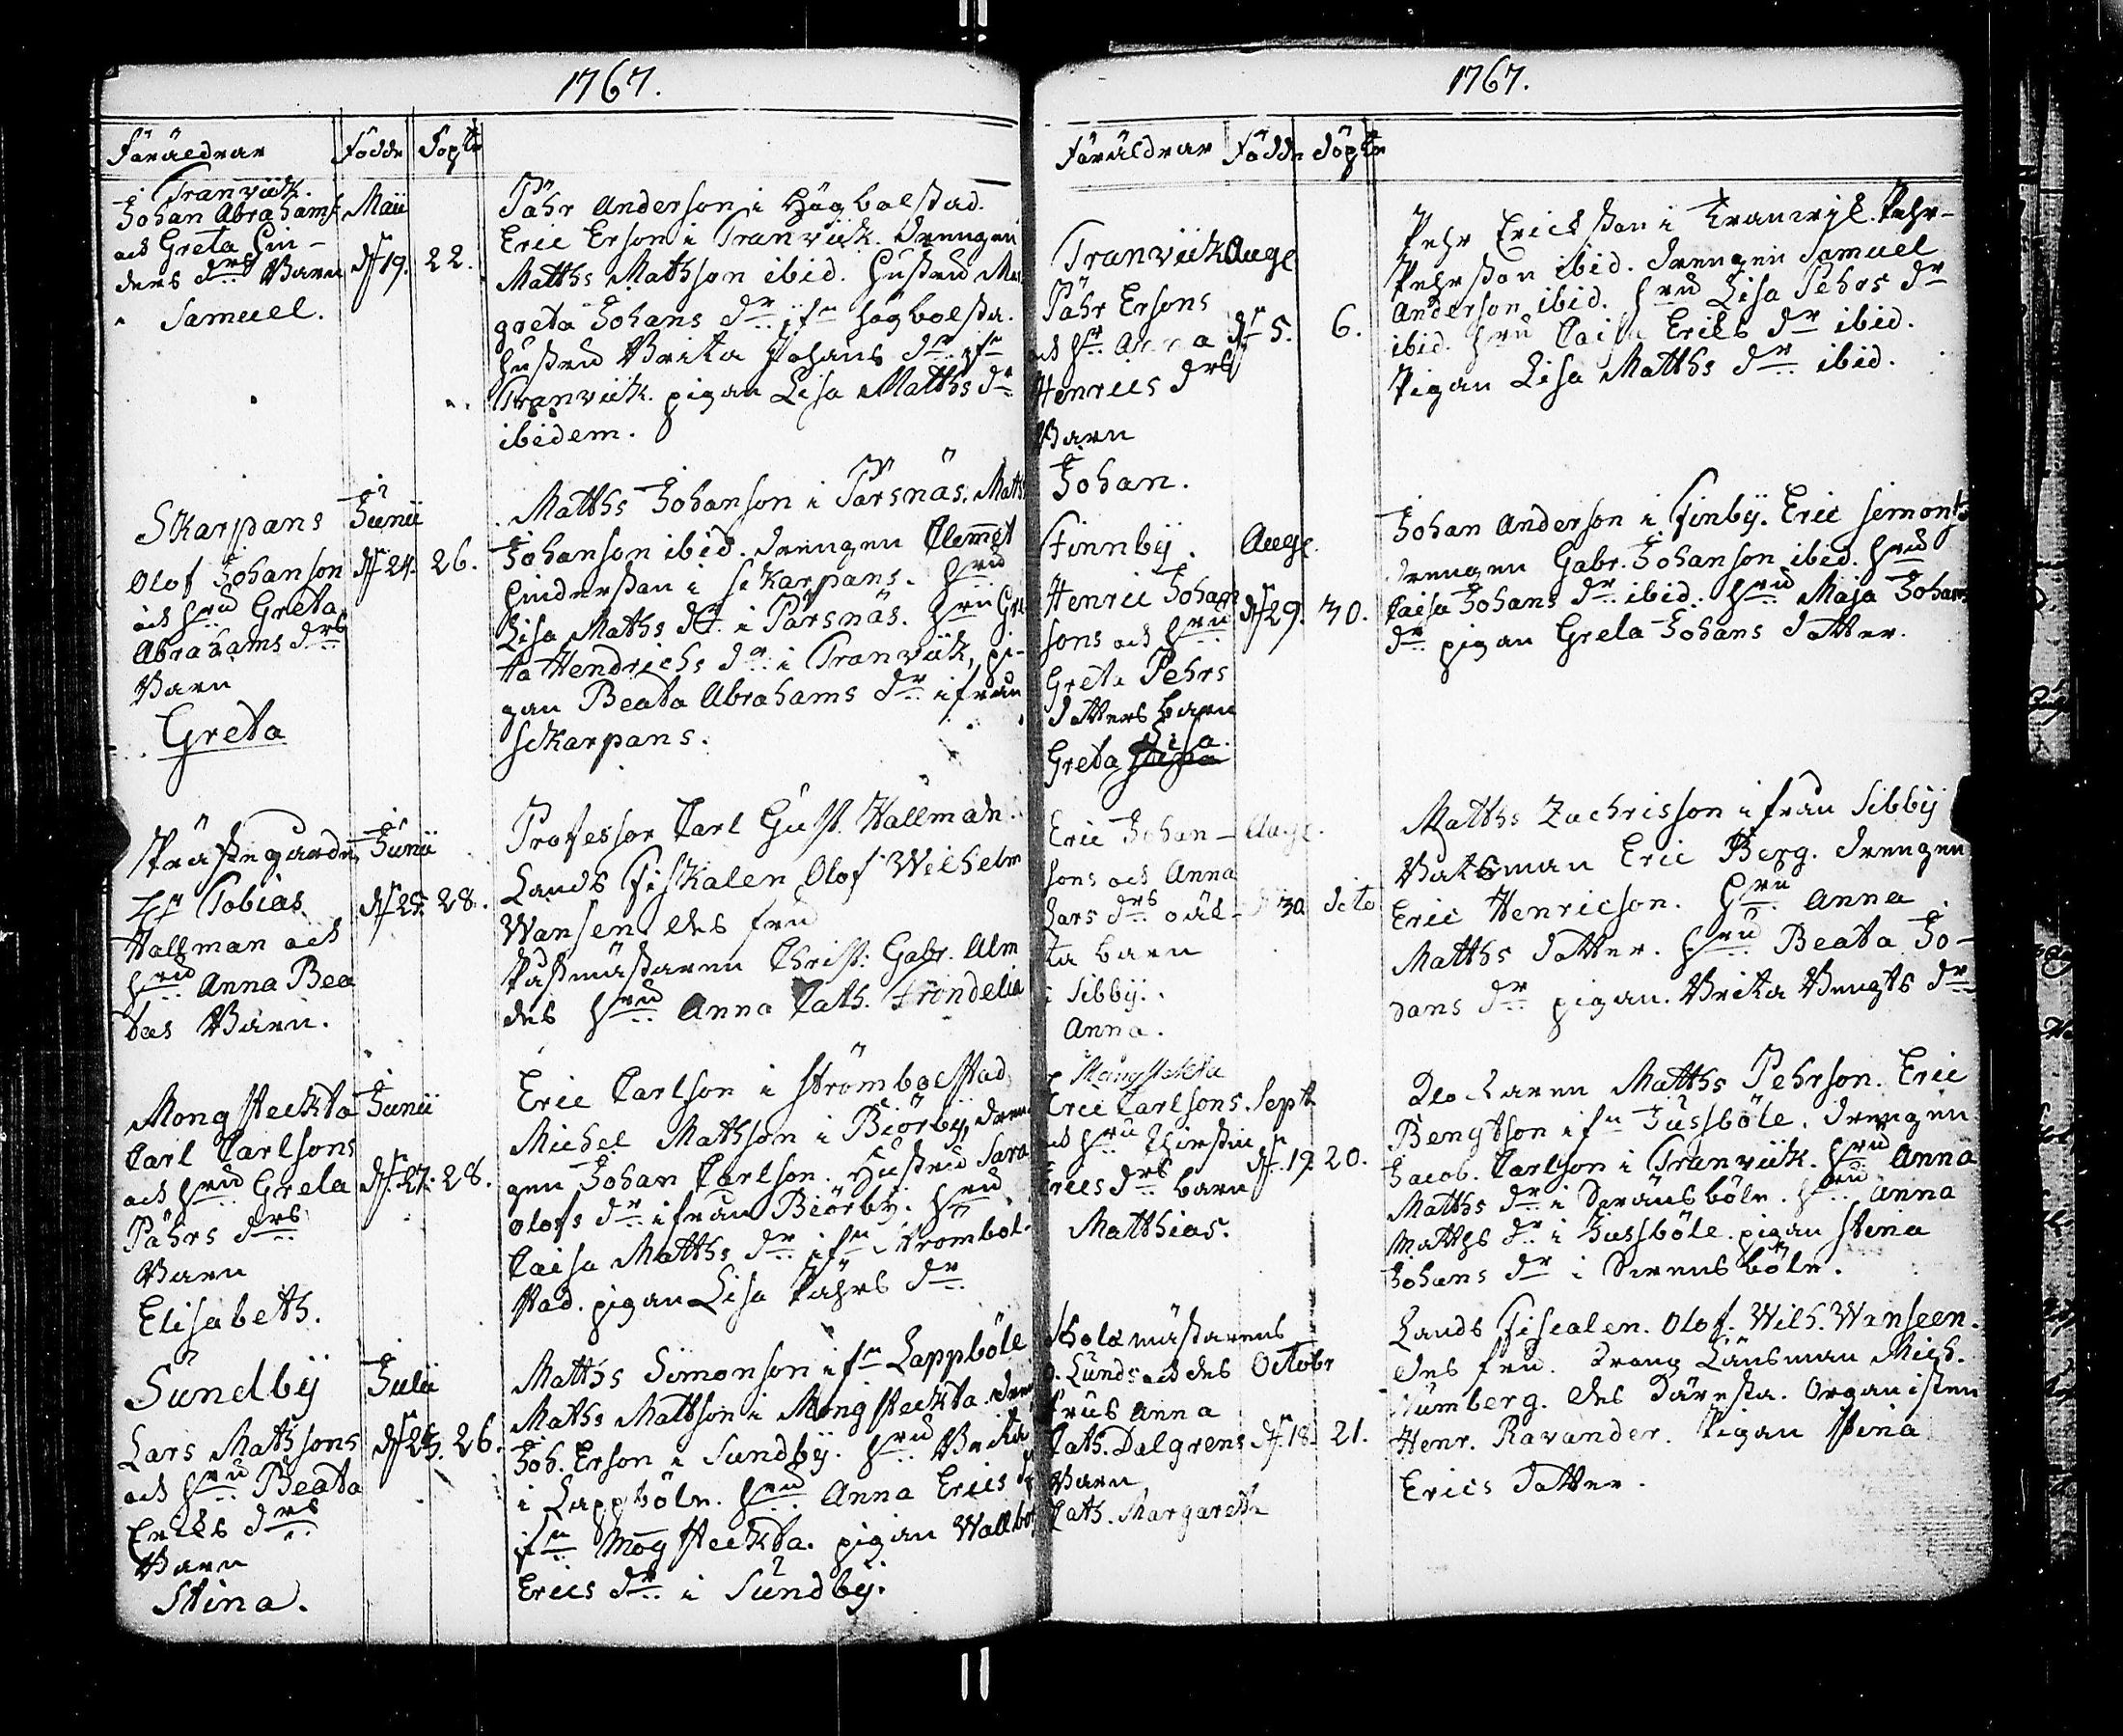 1767.
Föräldrar Födde Döpte
i Tranviik.
Johan Abrahams
och Greta Hin-
ders drs Barn
Samuel.
Maii
d 19. 22.
Påhr Anderson i Högbolstad.
Eric Erson i Tranviik. drengen
Matths Mathson ibid. Hustru Mar
greta Johans dr ifn högbolsta.
hustru Brita Johans dr ifn
Tranviik. pigan Lisa Matths dr
ibidem.
Skarpans
Olof Johanson
och hru Greta
Abrahams drs
Barn
Greta
Junii
d 24. 26.
Matths Johanson i Pärsnäs. Maths
Johanson ibid. drengen Clemet
Hinderson i Skarpans. hru
Lisa Maths dr i Pärsnäs. hru Gre
ta Hendrichs dr i Tranviik, pi-
gan Beata Abrahams dr ifrån
Skarpans.
Prästegården
Hr Tobias
Hallman och
hru Anna Bea
tas Barn.
Junii
d 25. 28.
Professor Carl Gust. Hallman.
Lands Fiskalen Olof Wilhelm
Wansen des fru
Påstmästaren Christ: Gabr. Alm
des hru Anna Cath. Frondelia
Mongstekta
Carl Carlsons
och hru Greta
Påhrs drs
Barn
Elisabeth.
Junii
d 27. 28.
Eric Carlson i Strömbolstad
Michel Mathson i Biörby, dren
gen Johan Carlson. Hustru Sara
Olofs dr ifrån Biörby. hru
Caisa Matths dr ifn Strömbol-
stad. pigan Lisa Påhrs dr
Sundby
Lars Mathsons
och hru Beata
Erichs drs
Barn
Stina.
Julii
d 25. 26.
Matths Simonson ifn Lappböle
Maths Mattson i Mongstekta. dren
Joh. Erson i Sundby. hru Brita
i Lappböle. hru Anna Erics dr
ifn Mogstekta. pigan Wallbor
Erics dr i Sundby.
1767.
Föräldrar Födde döpte
Tranviik
Påhr Ersons
och hr Anna
Henrics drs
Barn
Johan.
Augl
d 5. 6.
Pehr Ericsson i Tranvik. Pehr
Pehrsson ibid. drengen Samuel
Anderson ibid. hru Lisa Pehrs dr
ibid. hru Caisa Erics dr ibid.
Pigan Lisa Matths dr ibid.
Finnby.
Henric Johan
sons och hru
Greta Pehrs
dotters barn
Lisa.
Greta
Augl.
d 29. 30.
Johan Anderson i Finby. Eric Simons
drengen Gabr. Johanson ibid. hru
Caisa Johans dr ibid. hru Maja Johans
dr pigan Greta Johans dotter.
Eric Johan-
sons och Anna
Lars drs oäl-
ta barn
i Sibby.
Anna.
Augl.
30 dito
Matths Zachrisson ifrån Sibby
Båtsman Eric Berg. drengen
Eric Henricson. hru Anna
Matths dotter. hru Beata Jo-
dans dr pigan. Brita Bengts dr
Mångstekta
Eric Carlsons
och hru Kirstin
Erics drs barn
Matthias.
Sept.
d 19. 20.
Klockaren Matths Pehrson. Eric
Bengtson ifn Jussböle. drengen
Jacob. Carlson i Tranviik. hru Anna
Matths dr i Svensböle. hru Anna
Matths dr i Jussböle. pigan Stina
Johans dr i Svensböle.
Scholæmästarens
Lunds och des
frus Anna
Cath. Dalgrens
Barn
Cath. Margareta
Octobr
d 18. 21.
Lands Fiscalen. Olof. Wilh. Wanseen.
des fru. Länsman Mich.
Numberg. des Käresta. Organisten
Henr. Ravander. Pigan Stina
Erics dotter.